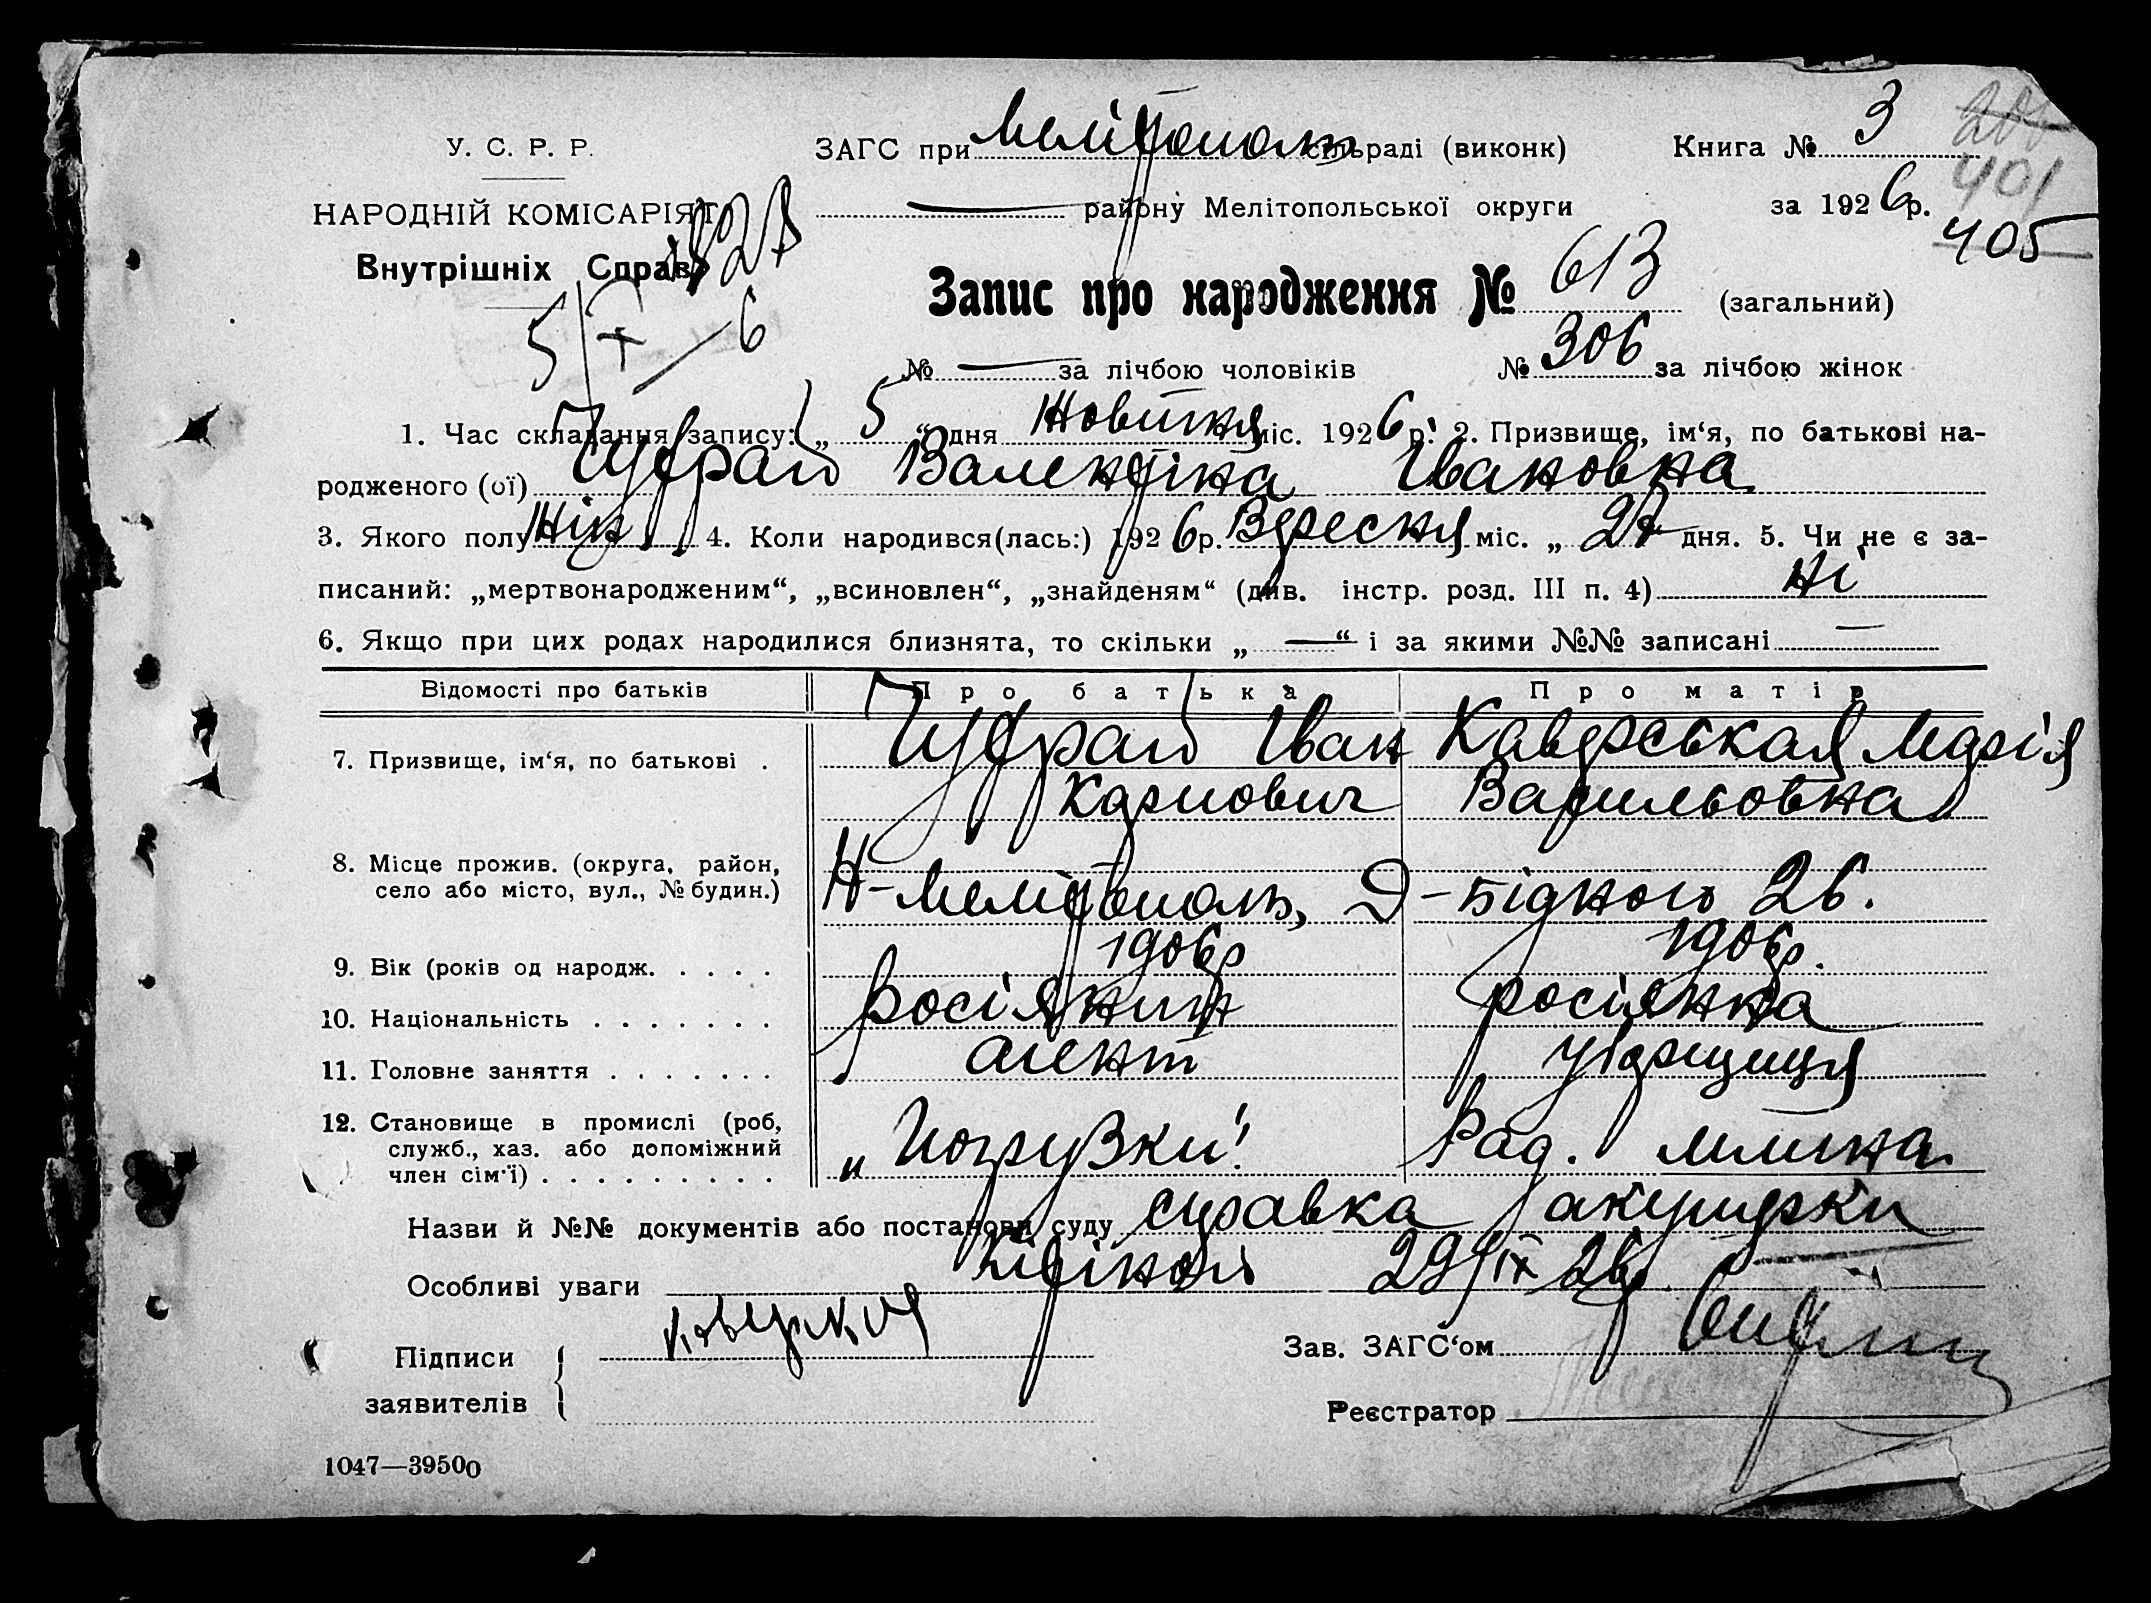 У. С. Р. Р.
ЗАГС при Мелітополь сільраді (виконк)
Книга № 3
401
НАРОДНІЙ КОМІСАРІЯТ
— району Мелітопольської округи
за 1926 р.
405
Внутрішніх Справ
Запис про народження № 613 (загальний)
5/X—6
№ — за лічбою чоловіків № 306 за лічбою жінок
1. Час складання запису: „ 5 “ дня Жовтня міс. 1926 р. 2. Призвище, ім‘я, по батькові на-
родженого (ої) Чуфрай Валентіна Івановна
3. Якого полу Жін 4. Коли народився(лась:) 1926 р. Вересня міс. „ 27 дня. 5. Чи не є за-
писаний: „мертвонародженим“, „всиновлен“, „знайденям“ (див. інстр. розд. III п. 4) Ні
6. Якщо при цих родах народилися близнята, то скільки „ — “ і за якими №№ записані —
Відомості про батьків Про батька Про матір
7. Призвище, ім‘я, по батькові . Чуфрай Іван Каверськая Марія
Карпович Васильовна
8. Місце прожив. (округа, район,
село або місто, вул., № будин.) Н-Мелітополь, Д-Бідного 26.
9. Вік (років од народж. . . . . 1906р 1906р.
10. Національність . . . . . . . росіянин росіянка
11. Головне заняття . . . . . . . агент
12. Становище в промислі (роб,
служб., хаз. або допоміжний
член сім‘ї) . . . . . . . . . „Погрузки“ Рад.
Назви й №№ документів або постанови суду справка акушерки
29/IX 26р
Особливі уваги
Підписи
заявителів
Зав. ЗАГС‘ом
Реєстратор
1047—39500